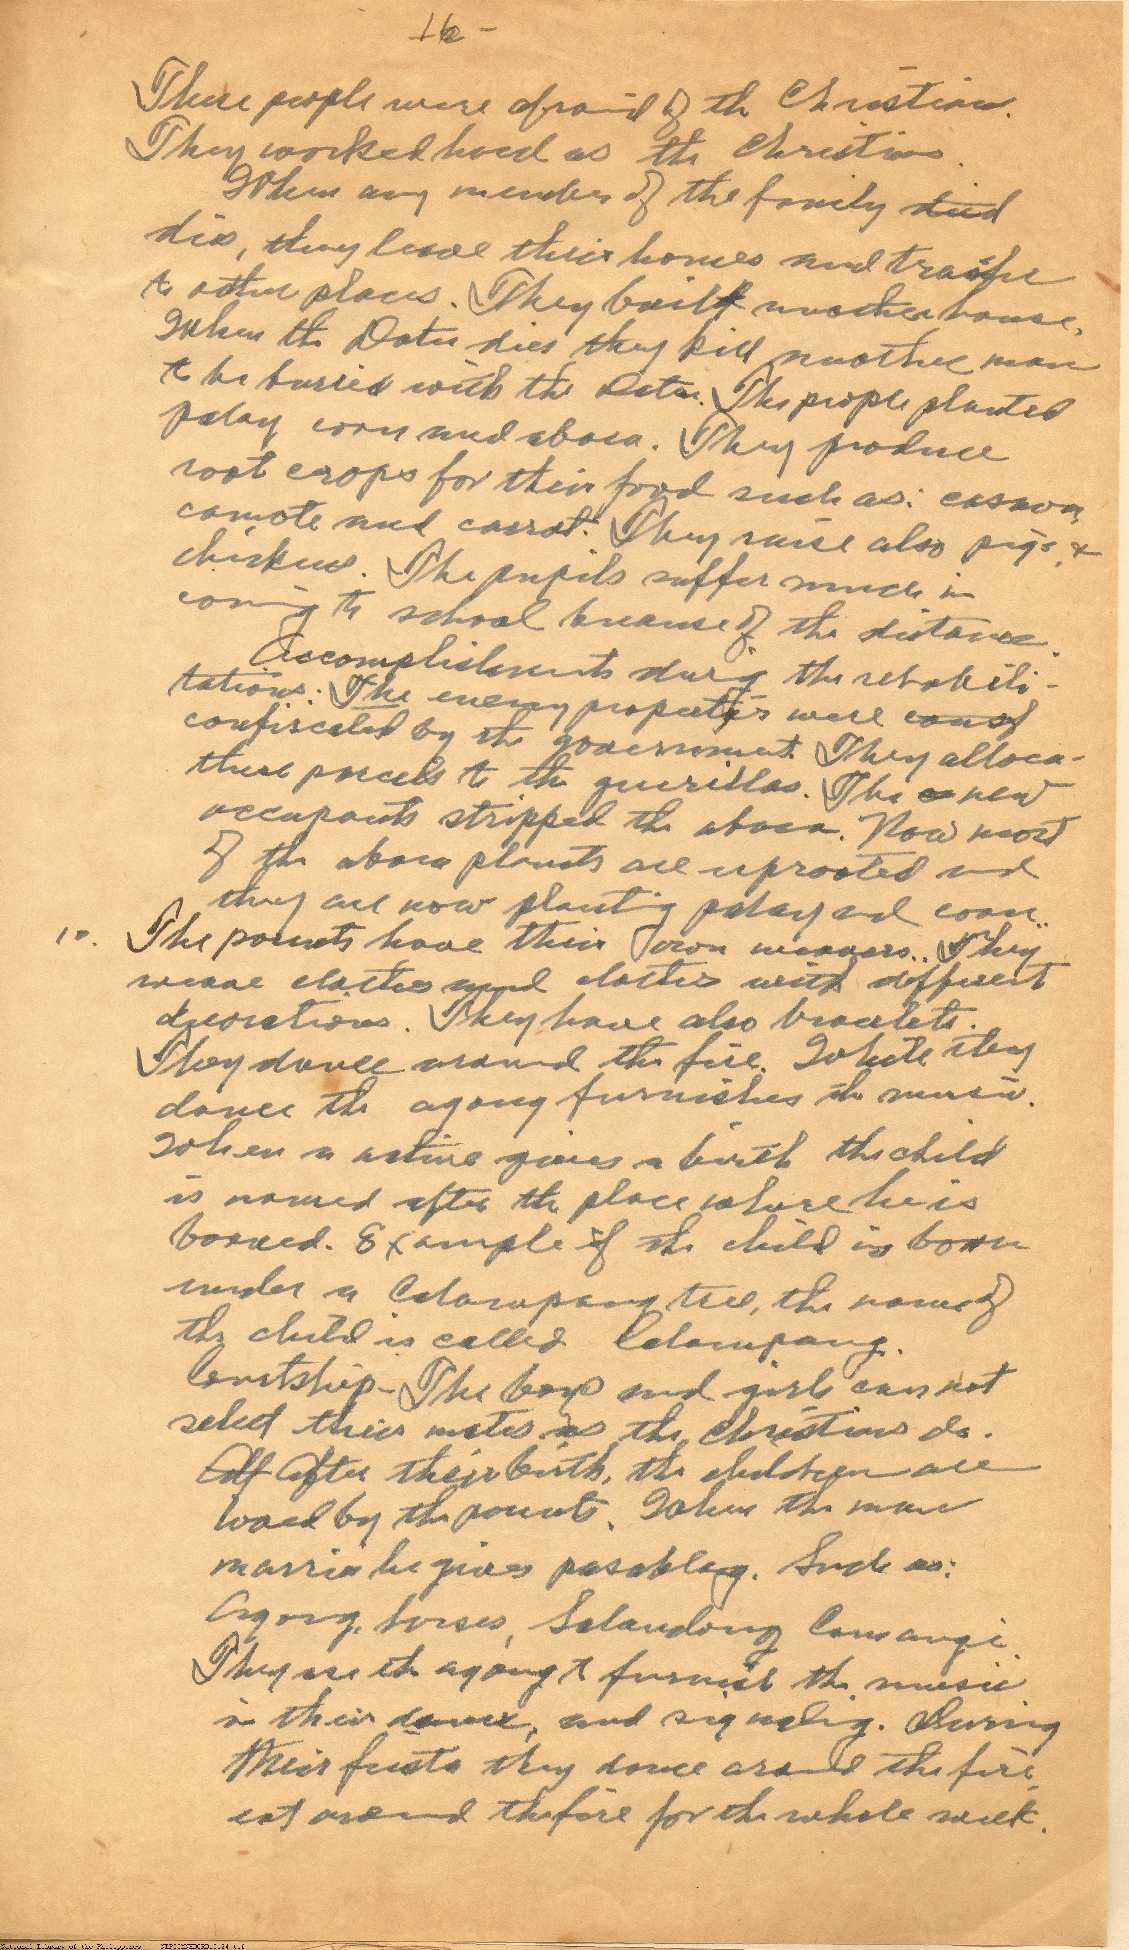 16 -
These people were afraid of the Christian.
They worked hard as the Christians.
When any member of the family died
die, they leave their homes and transfer
to other places. They built another house.
When the Datu dies they kill another man
to be burried with the Datu. The people planted
palay, corn and abaca. They produce
root crops for their food such as: casava,
camote and carrot. They raise also pigs, &
chickens. The pupils suffer much in
coming to school because of the distance.
Accomplishments during the rehabili-
tations: The enemy properties were
confiscated by the government. They alloca-
these parcels to the guerillas. The new
occupants stripped the abaca. Now most
of the abaca plants are uprooted and
they are now planting palay and corn.
10. The parents have their own weavers. They
weave clothes and clothes with different
decorations. They have also bracelets.
They dance around the fire. While they
dance the agong furnishes the music.
When a native gives a birth the child
is named after the place where he is
borned. Example if the child is born
under a Calampang tree, the name of
the child is called Calampang.
Courtship - The boys and girls can not
select their mates as the Christians do.
Aff After their birth, the children are
by the parents. When the man
marries he gives pasablag. Such as:
Agong, horses, Salandong Camangi.
They use the agong to furnish the music
in their dance, and signaling. During
their fiesta they dance around the fire,
eat around the fire for the whole week.
National Library of the Philippines